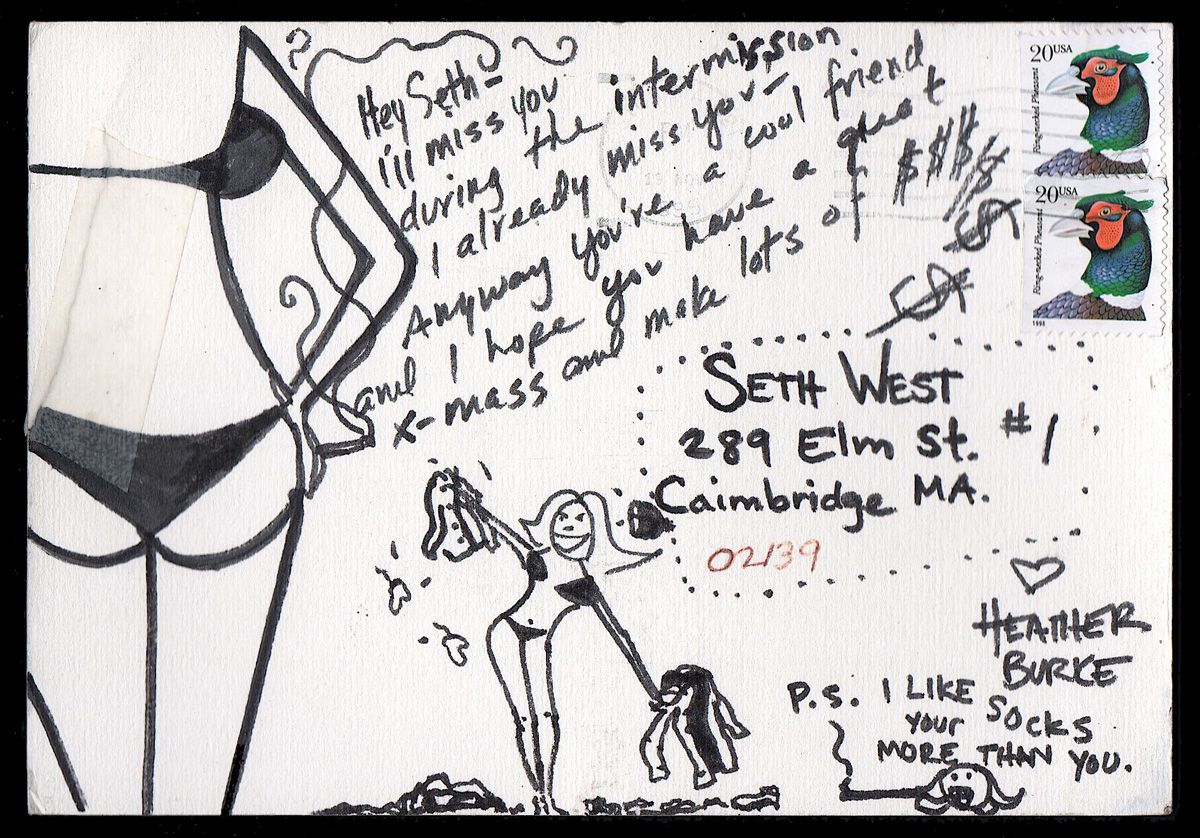 Hey Seth-
I'll miss you
during the intermission
I already miss you-
Anyway you're a cool friend
and I hope you have a great
x-mass and make lots of $$$$
$
$
20USA
Ring-necked Pheasant
20USA
Ring-necked Pheasant
1998
SETH WEST
289 Elm St. #1
Caimbridge MA.
02139
HEATHER
BURKE
P.S. I LIKE
your SOCKS
MORE THAN YOU.